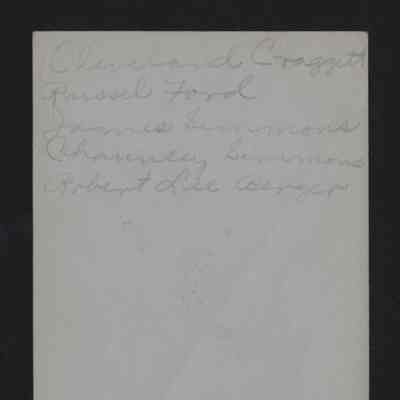 Cleveland Craggett
Russel Ford
James Simmons
Chauncey Simmons
Robert Lee